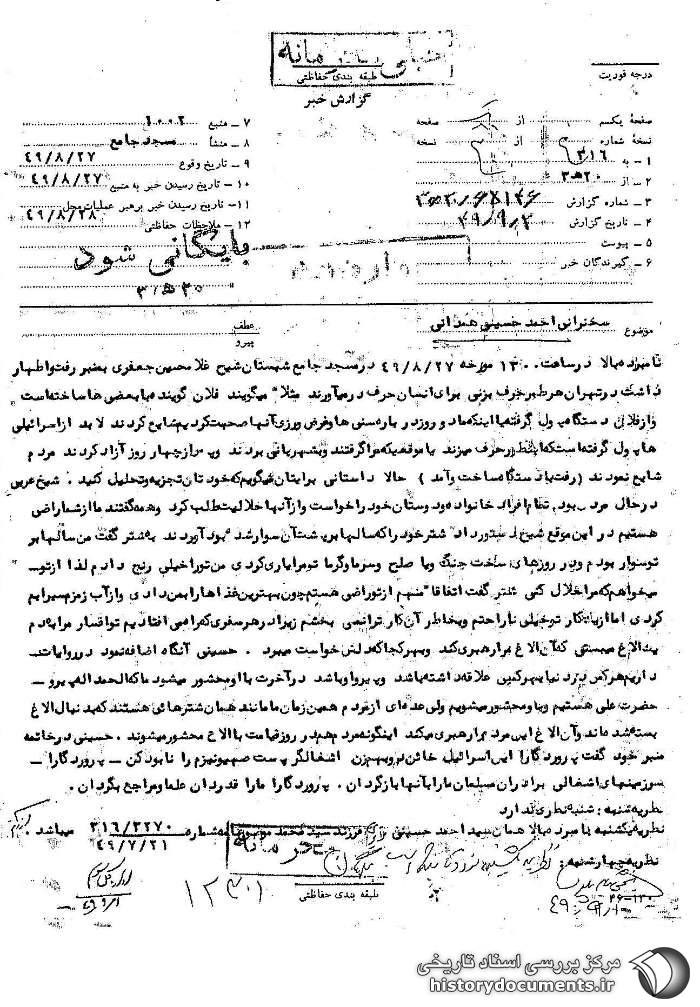 خیلی محرمانه
طبقه بندی حفاظتی
درجه فوریت
گزارش خبر
صفحهٔ یکم از صفحه
نسخهٔ شماره از نسخه
۱ – به ۳۱۶
۲ – از ۲۰ﻫ۳
۳ – شماره گزارش
۴ – تاریخ گزارش ۴۹/۹/۲
۵ – پیوست
۶ – گیرندگان خبر
۷ – منبع ۱۰۰۲
۸ – منشأ مسجد جامع
۹ – تاریخ وقوع ۴۹/۸/۲۷
۱۰ – تاریخ رسیدن خبر به منبع ۴۹/۸/۲۷
۱۱ – تاریخ رسیدن خبر برهبر عملیات محل ۴۹/۸/۲۸
۱۲ – ملاحظات حفاظتی
بایگانی شود
موضوع سخنرانی احمد حسینی همدانی
عطف
پیرو
نامبرده بالا در ساعت ۱۳۰۰ مورخه ۴۹/۸/۲۷ در مسجد جامع شبستان شیخ غلامحسین جعفری بمنبر رفت و اظهار
داشت در تهران هر طور حرف بزنی برای انسان حرف در میآورند مثلا" میگویند فلان گوینده با بعضی ها ساخته است
و از فلان دستگاه پول گرفته یا اینکه ماد و روز درباره سنی ها و غرض ورزی آنها صحبت کردیم شایع کردند لابد از اسرائیلی
ها پول گرفته است که اینطور حرف میزند یا موقعیکه مرا گرفتند و بشهربانی بردند و پس از چهار روز آزاد کردند مردم
شایع نمودند ( رفت با دستگاه ساخت و آمد ) حالا داستانی برایتان میگویم که خودتان تجزیه و تحلیل کنید . شیخ عربی
در حال مردن بود تمام افراد خانواده و دوستان خود را خواست و از آنها حلالیت طلب کرد و همه گفتند ما از شما راضی
هستیم در این موقع شیخ دستور داد شتر خود را که سالها بر پشت آن سوار شده بود آوردند به شتر گفت من سالها بر
تو سوار بودم و در روزهای سخت جنگ و یا صلح و سرما و گرما تو مرا یاری کردی من تو را خیلی رنج دادم لذا از تو –
میخواهم که مرا حلال کنی شتر گفت اتفاقا" منهم از تو راضی هستم چون بهترین غذاها را بمن دادی و از آب زمزم سیرابم
کردی اما از یک کار تو خیلی ناراحتم و بخاطر آن کار ترا نمی بخشم زیرا در هر سفری که راه می افتادیم تو افسار مرا به دم
یک الاغ میبستی که آن الاغ مرا رهبری کند و بهر کجا که دلش خواست میبرد . حسینی آنگاه اضافه نمود در روایات –
داریم هر کس در دنیا بهر کس علاقه داشته باشد و پیرو او باشد در آخرت با او محشور میشود ما که الحمد اله پیرو –
حضرت علی هستیم و با او محشور میشویم ولی عده ای از مردم همین زمان ما مانند همان شترهائی هستند که بدنبال الاغ
بسته شده اند و آن الاغ این مردم را رهبری میکند اینگونه مردم هم در روز قیامت با الاغ محشور میشوند . حسینی در خاتمه
منبر خود گفت پروردگارا این اسرائیل خائن و بیدین اشغالگر پست صهیونیزم را نابود کن – پروردگارا –
سرزمینهای اشغالی برادران مسلمان ما را بآنها بازگردان . پروردگارا ما را قدردان علما و مراجع بگردان .
نظریه شنبه : شنبه نظری ندارد
نظریه یکشنبه نامبرده بالا همان سید احمد حسینی فرزند سید محمد شماره ۳۱۶/۳۲۷۰ میباشد .
۴۹/۷/۲۱
نظریه چهارشنبه :
محرمانه
طبقه بندی حفاظتی
۱۲۳۰۱
مرکز بررسی اسناد تاریخی
historydocuments.ir